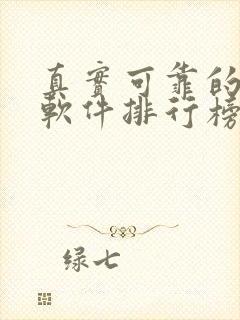 真實可靠的
軟件排行榜
绿七